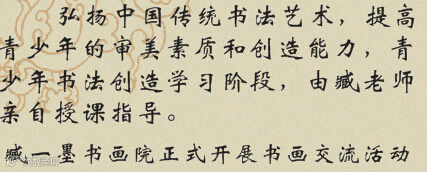 弘扬中国传统书法艺术，提高
青少年的审美素质和创造能力，青
少年书法创造学习阶段，由臧老师
亲自授课指导。
臧一墨书画院正式开展书画交流活动